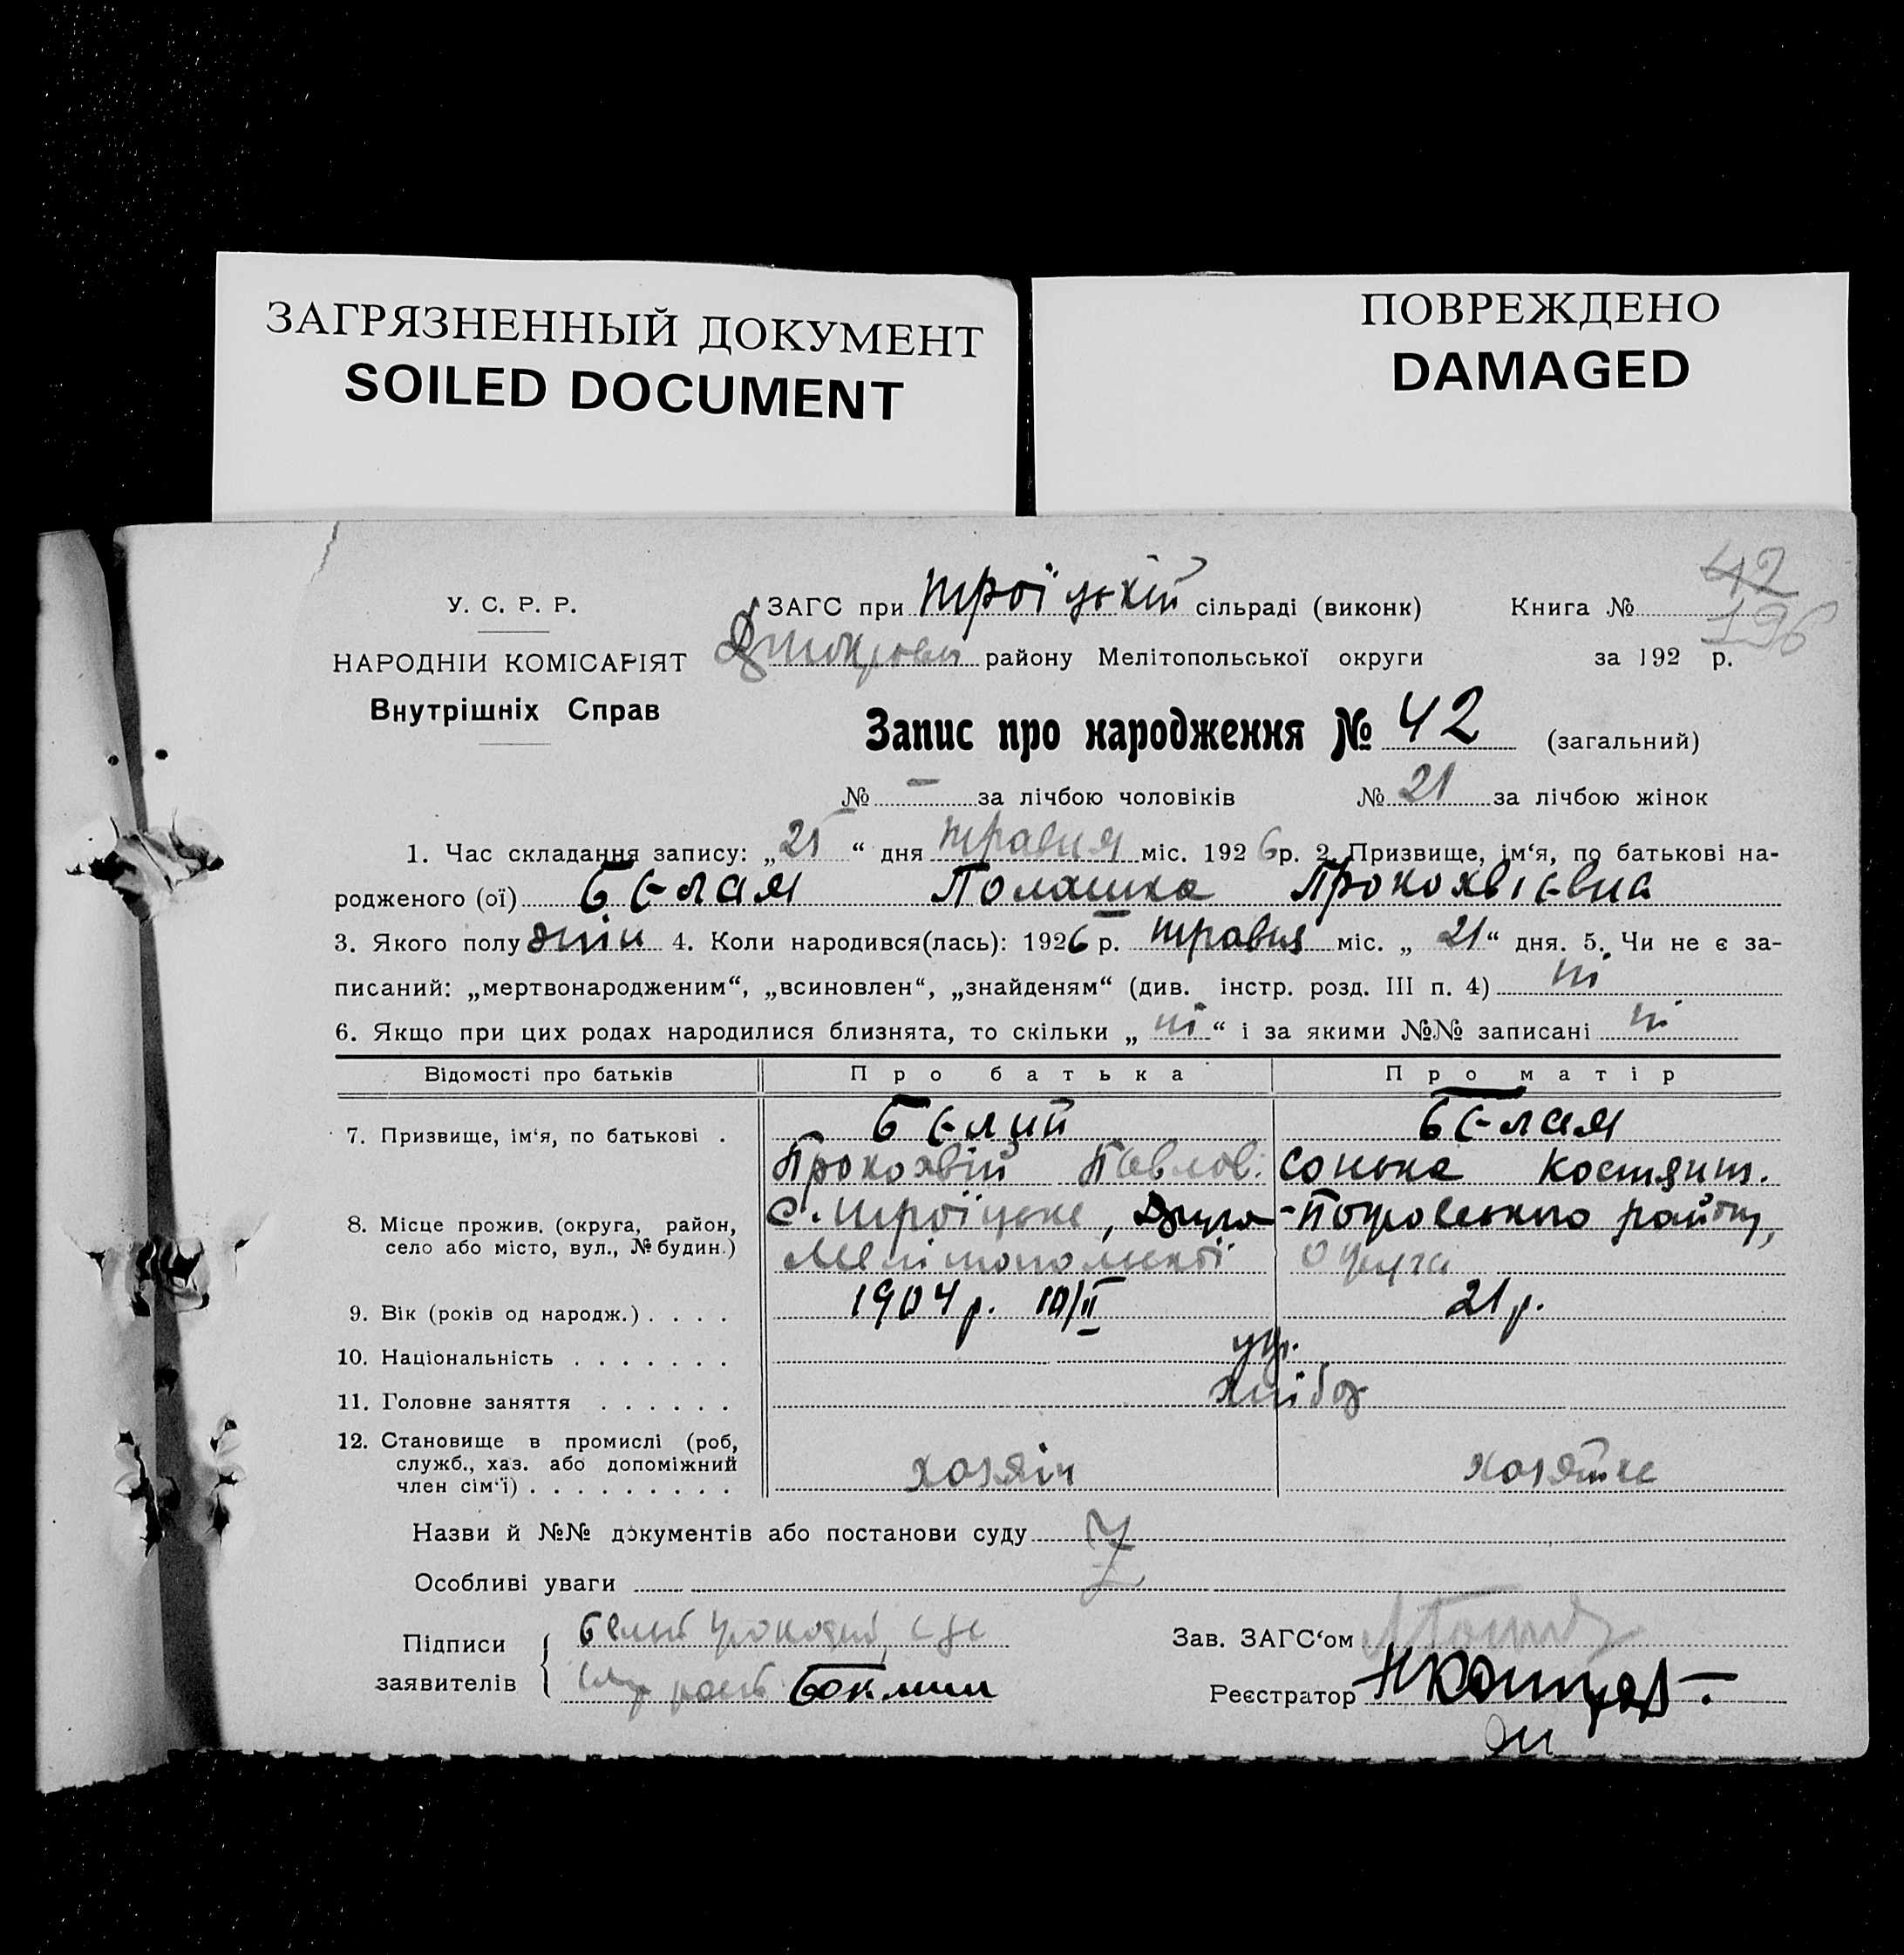 ЗАГРЯЗНЕННЫЙ ДОКУМЕНТ
SOILED DOCUMENT
ПОВРЕЖДЕНО
DAMAGED
42
196
У. С. Р. Р.
НАРОДНІИ КОМІСАРІЯТ
Внутрішніх Справ
ЗАГС при Троїцькій сільраді (виконк) Книга №
району Мелітопольської округи за 192 р.
Запис про народження № 42 (загальний)
№ — за лічбою чоловіків № 21 за лічбою жінок
1. Час складання запису: „25“ дня травня міс. 1926р. 2. Призвище, ім‘я, по батькові на-
родженого (ої) Бєлая Полашка Прокохвієвна
3. Якого полу жін 4. Коли народився(лась): 1926 р. травня міс. „21“ дня. 5. Чи не є за-
писаний: „мертвонародженим“, „всиновлен“, „знайденям“ (див. інстр. розд. III п. 4) ні
6. Якщо при цих родах народилися близнята, то скільки „ні“ і за якими №№ записані ні
Відомості про батьків Про батька Про матір
7. Призвище, ім‘я, по батькові . Бєлий Бєлая
Прокохвій Павлов. Сонька Костянт.
8. Місце прожив. (округа, район, село або місто, вул., № будин.) с. Троїцьке, -Покровського району,
Мелітопольскої округи
9. Вік (років од народж.) . . . . 1904 р. 10/II 21 р.
10. Національність . . . . . . . укр.
11. Головне заняття . . . . . . хлібор
12. Становище в промислі (роб,
служб., хаз. або допоміжний
член сім‘ї) . . . . . . . . . хозяін хозяйка
Назви й №№ документів або постанови суду
Особливі уваги
Підписи
заявителів
Белий
Зав. ЗАГС‘ом
Реєстратор